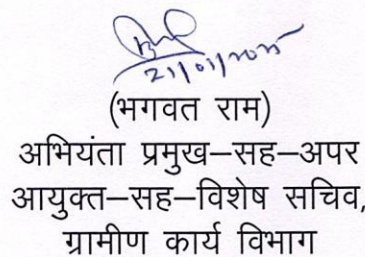 21/01/2025
(भगवत राम)
अभियंता प्रमुख–सह–अपर
आयुक्त–सह–विशेष सचिव,
ग्रामीण कार्य विभाग